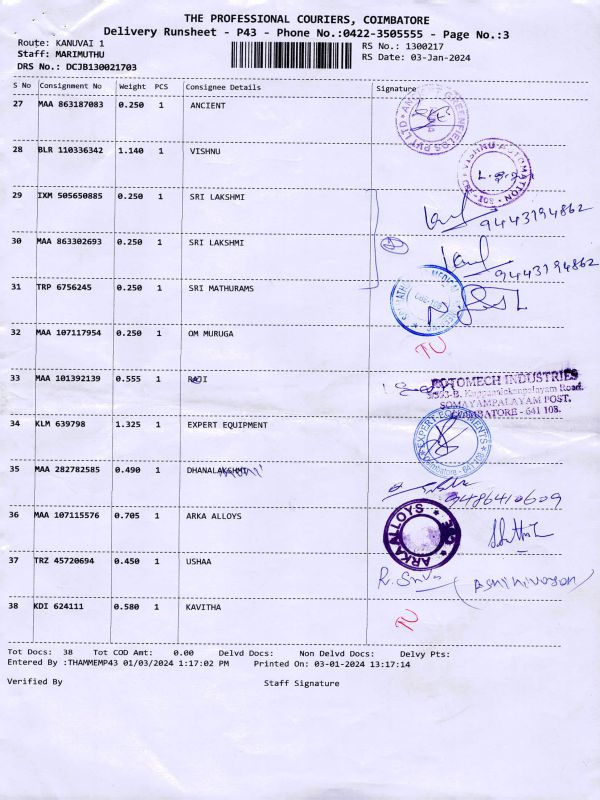 THE PROFESSIONAL COURIERS, COIMBATORE
Delivery Runsheet - P43 - Phone No.:0422-3505555 - Page No.:3
Route: KANUVAI 1
RS No.: 1300217
Staff: MARIMUTHU
RS Date: 03-Jan-2024
DRS No.: DCJB130021703
S No Consignment No Weight PCS Consignee Details Signature
27 MAA 863187083 0.250 1 ANCIENT
28 BLR 110336342 1.140 1 VISHNU
VISHNU AUTOMATION
29 IXM 505650885 0.250 1 SRI LAKSHMI
9443194862
30 MAA 863302693 0.250 1 SRI LAKSHMI
9443194862
31 TRP 6756245 0.250 1 SRI MATHURAMS
32 MAA 107117954 0.250 1 OM MURUGA
33 MAA 101392139 0.555 1 RAJI
ROTOMECH INDUSTRIES
SOMAYAMPALAYAM POST.
COIMBATORE - 641 108.
34 KLM 639798 1.325 1 EXPERT EQUIPMENT
EXPERT EQUIPMENTS
Coimbatore - 641 108
35 MAA 282782585 0.490 1 DHANALAKSHMI
9486410609
36 MAA 107115576 0.705 1 ARKA ALLOYS
ARKA ALLOYS CBE
37 TRZ 45720694 0.450 1 USHAA
38 KDI 624111 0.580 1 KAVITHA
Tot Docs: 38 Tot COD Amt: 0.00 Delvd Docs: Non Delvd Docs: Delvy Pts:
Entered By :THAMMEMP43 01/03/2024 1:17:02 PM Printed On: 03-01-2024 13:17:14
Verified By Staff Signature